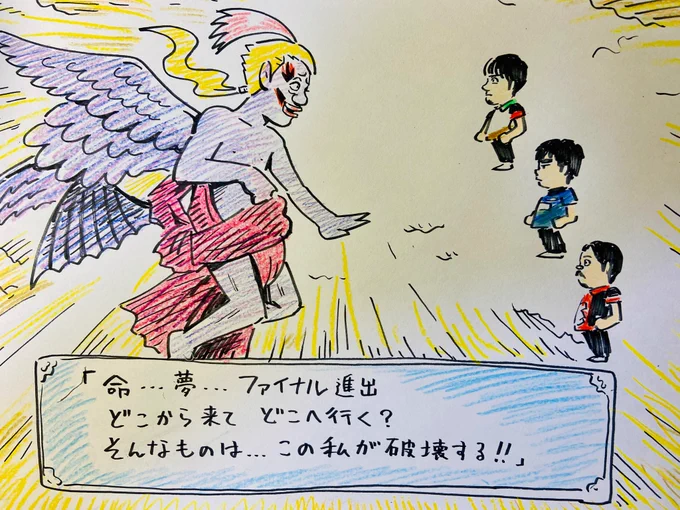 「命…夢…ファイナル進出
どこから来て どこへ行く?
そんなものは…この私が破壊する!!」